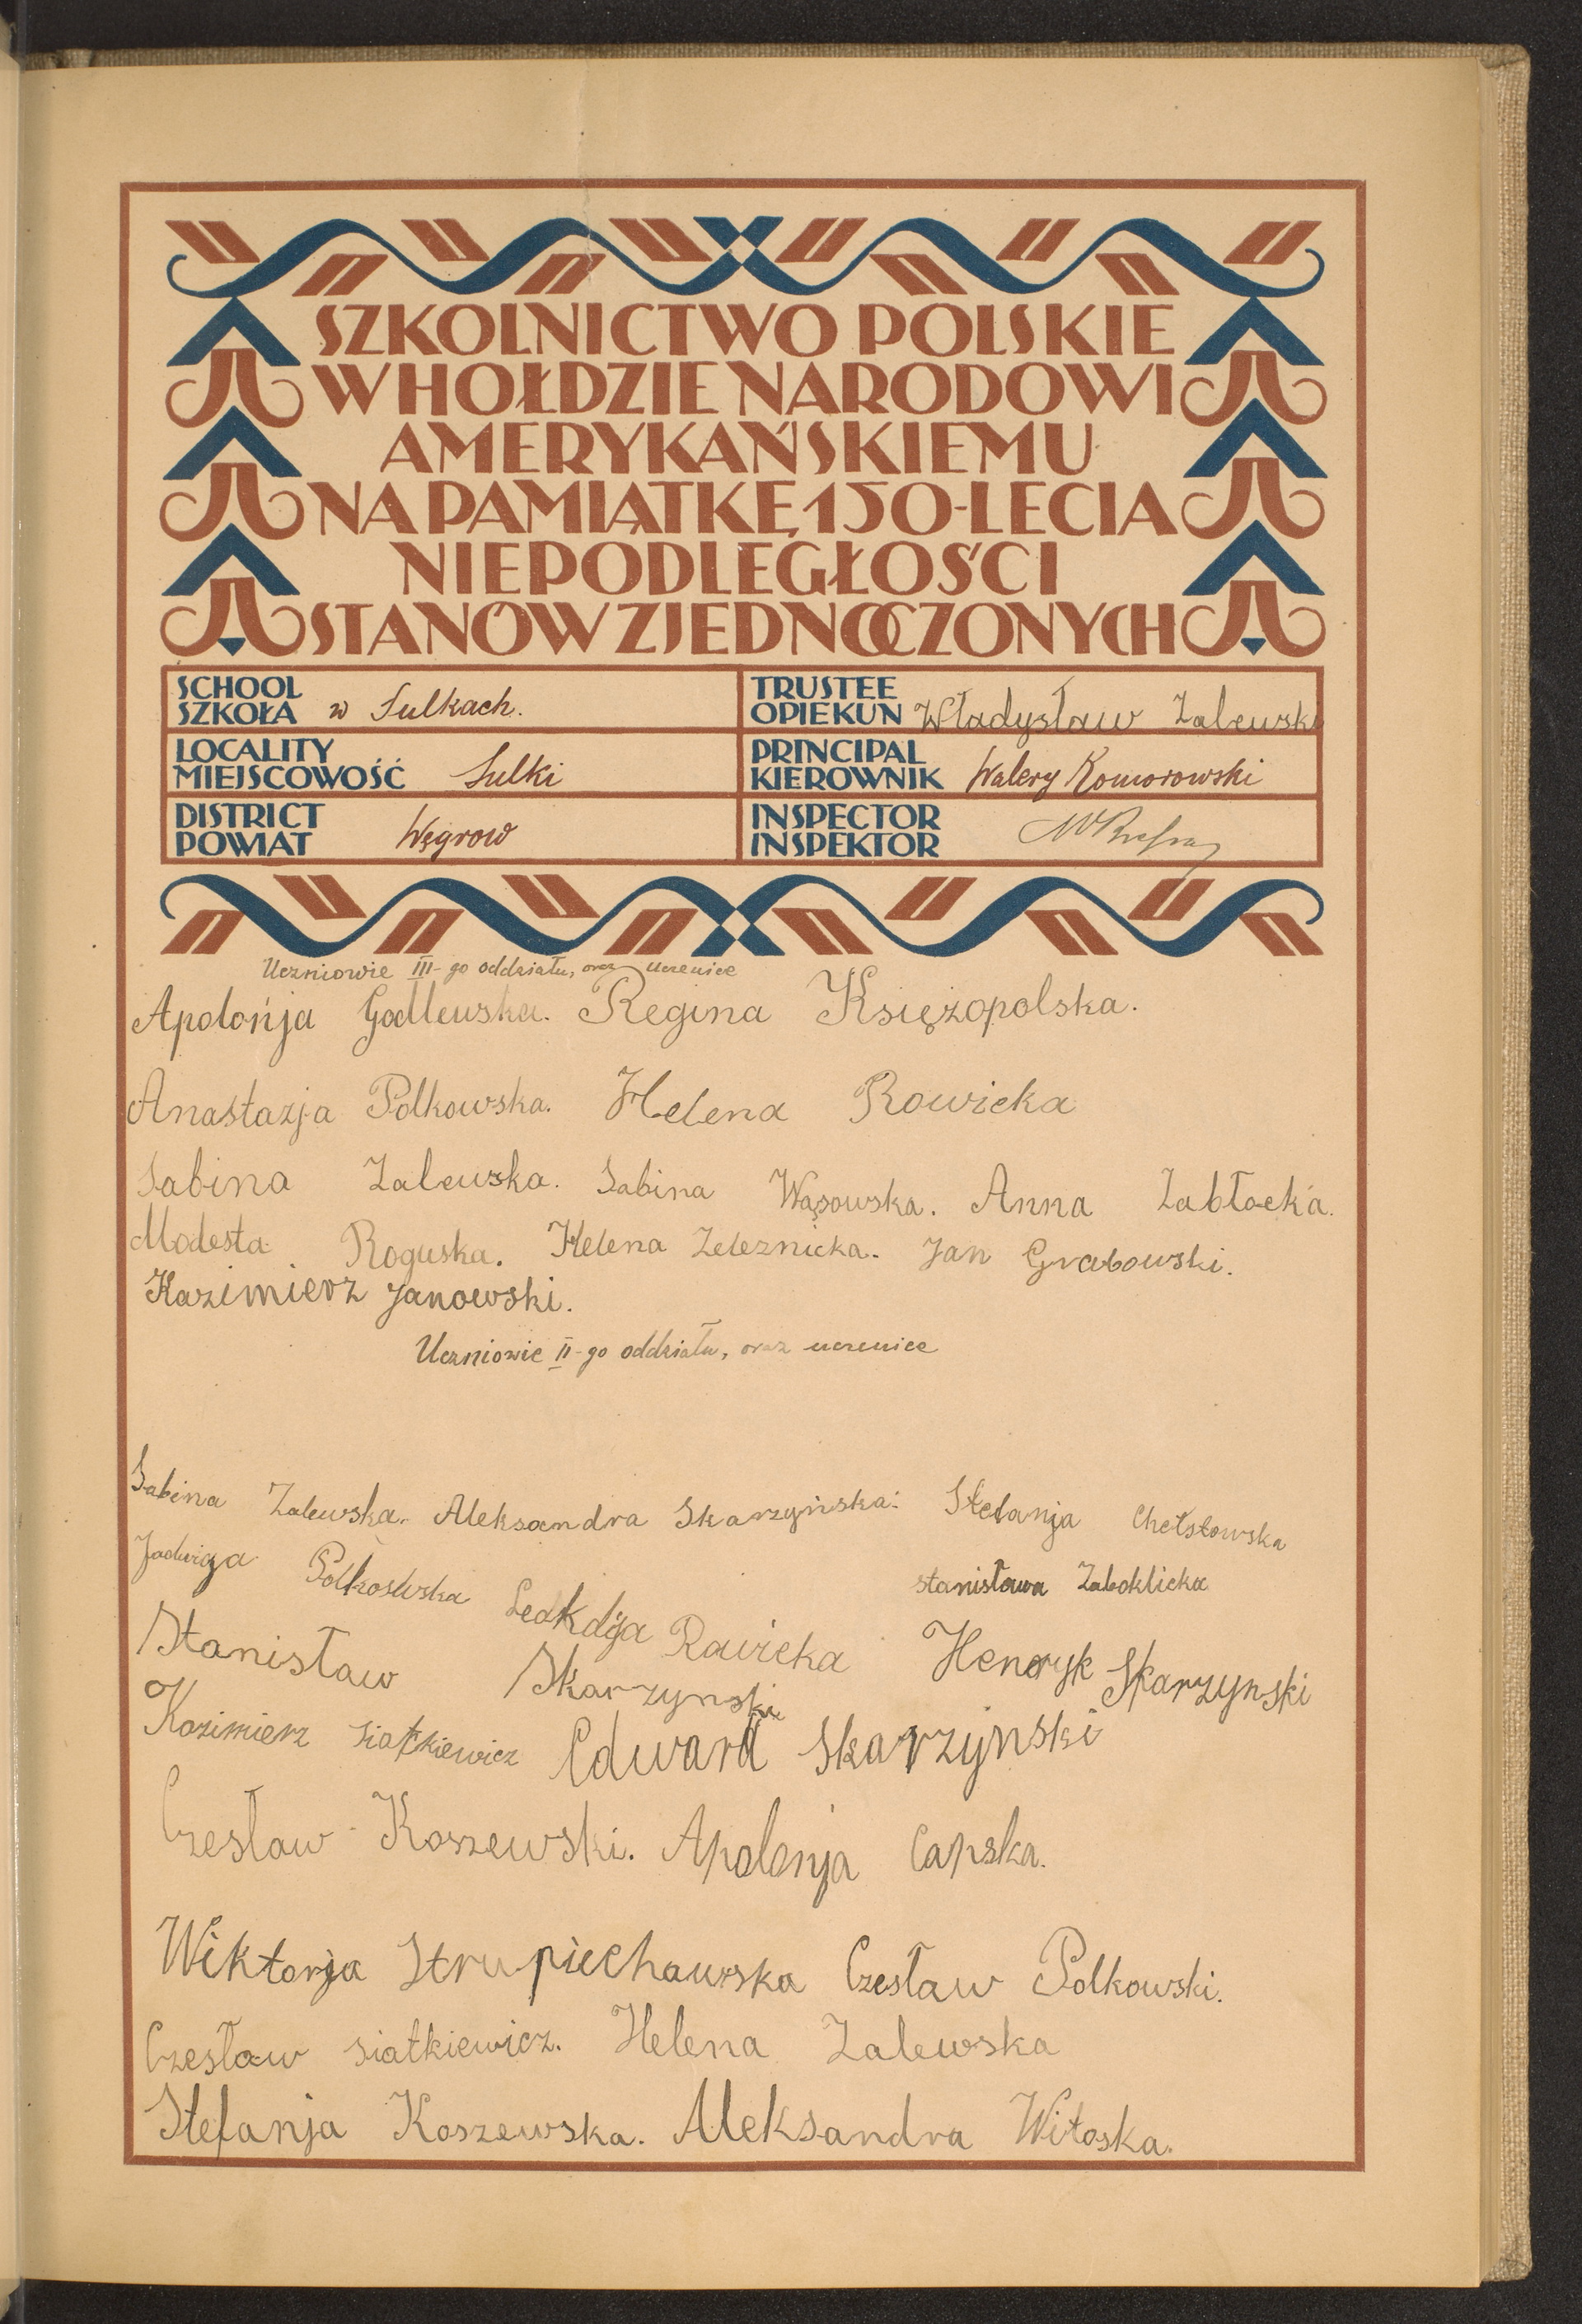 SZKOLNICTWO POLSKIE
W HOŁDZIE NARODOWI
AMERYKAŃSKIEMU
NA PAMIĄTKĘ 150-LECIA
NIEPODLEGŁOŚCI
STANÓW ZJEDNOCZONYCH
SCHOOL
SZKOŁA w Sulkach.
TRUSTEE
OPIEKUN Władysław Zalewski
LOCALITY
MIEJSCOWOŚĆ Sulki
PRINCIPAL
KIEROWNIK Walery Komorowski
DISTRICT
POWIAT Węgrow
INSPECTOR
INSPEKTOR
Uczniowie III-go oddziału, oraz uczenice
Apolońja Godlewska. Regina Księżopolska.
Anastazja Polkowska. Helena Rowicka
Sabina Zalewska. Sabina Wąsowska. Anna Zabłocka.
Modesta Roguska. Helena Zeleznicka. Jan Grabowski.
Kazimierz Janowski.
Uczniowie II-go oddziału, oraz uczenice
Sabina Zalewska. Aleksandra Skarzyńska. Stefanja Chełstowska
Jadwiga Polkowska Leokdija Rawicka Stanisława Zaboklicka
Stanisław Skarzynski Henryk Skarzynski
Kazimierz Siatkiewicz Edward Skarzynski
Czesław Koszewski. Apolonja Capska.
Wiktorja Strupiechowska Czesław Polkowski.
Czesław Siatkiewicz. Helena Zalewska
Stefanja Koszewska. Aleksandra Witoska.